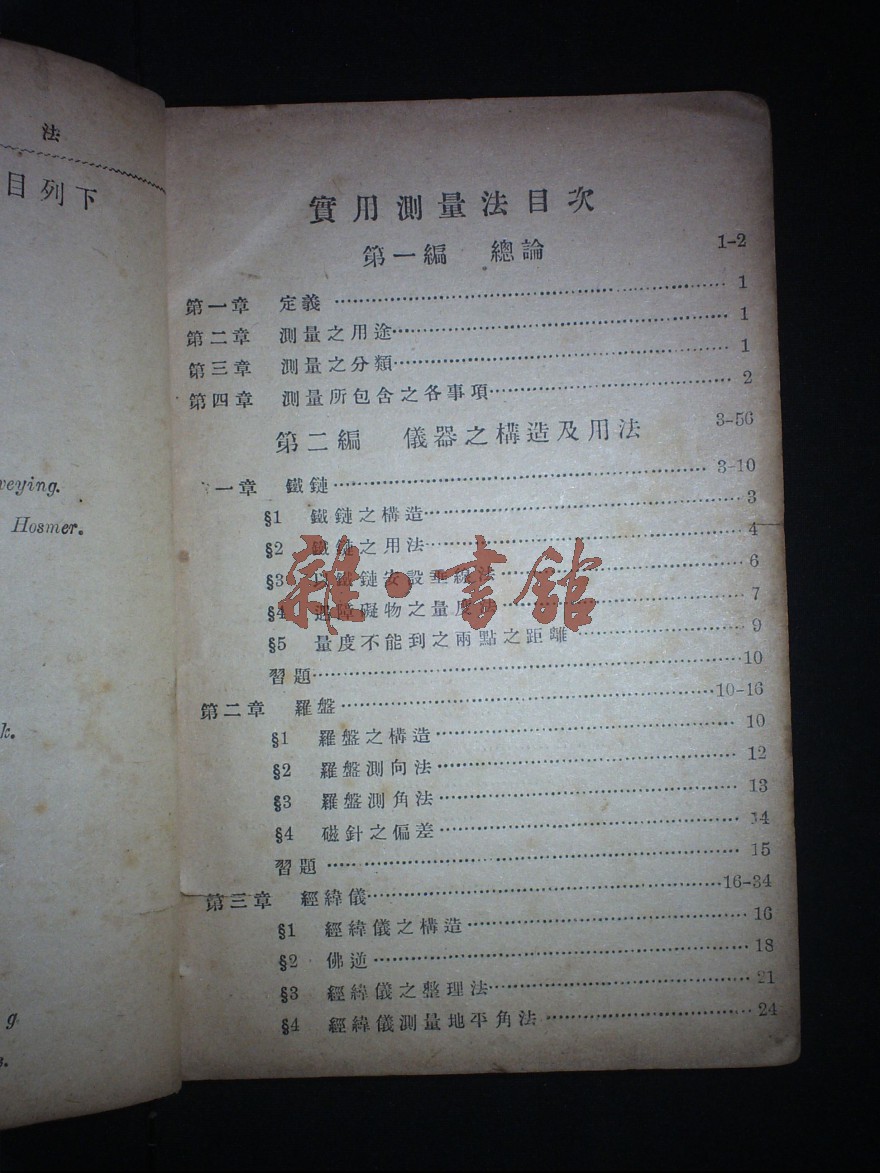 法
目列下
veying.
Hosmer.
k.
g
s.
實用測量法目次
第一編 總論 1-2
第一章 定義 1
第二章 測量之用途 1
第三章 測量之分類 1
第四章 測量所包含之各事項 2
第二編 儀器之構造及用法 3-56
一章 鐵鏈 3-10
§1 鐵鏈之構造 3
§2 鐵鏈之用法 4
§3 以鐵鏈安設垂線法 6
§4 遇障礙物之量度法 7
§5 量度不能到之兩點之距離 9
習題 10
第二章 羅盤 10-16
§1 羅盤之構造 10
§2 羅盤測向法 12
§3 羅盤測角法 13
§4 磁針之偏差 14
習題 15
第三章 經緯儀 16-34
§1 經緯儀之構造 16
§2 佛逆 18
§3 經緯儀之整理法 21
§4 經緯儀測量地平角法 24
雜·書館